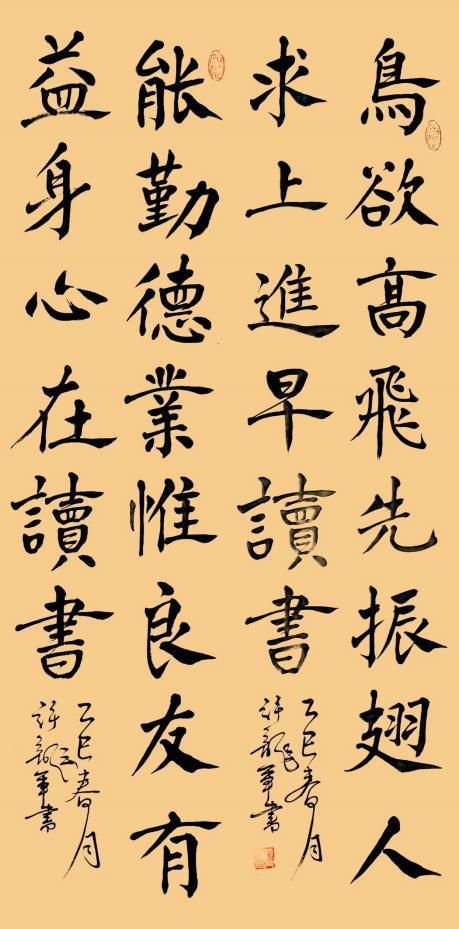 鳥欲高飛先振翅人
求上進早讀書
乙巳春月
能勤德業惟良友有
益身心在讀書
乙巳春月